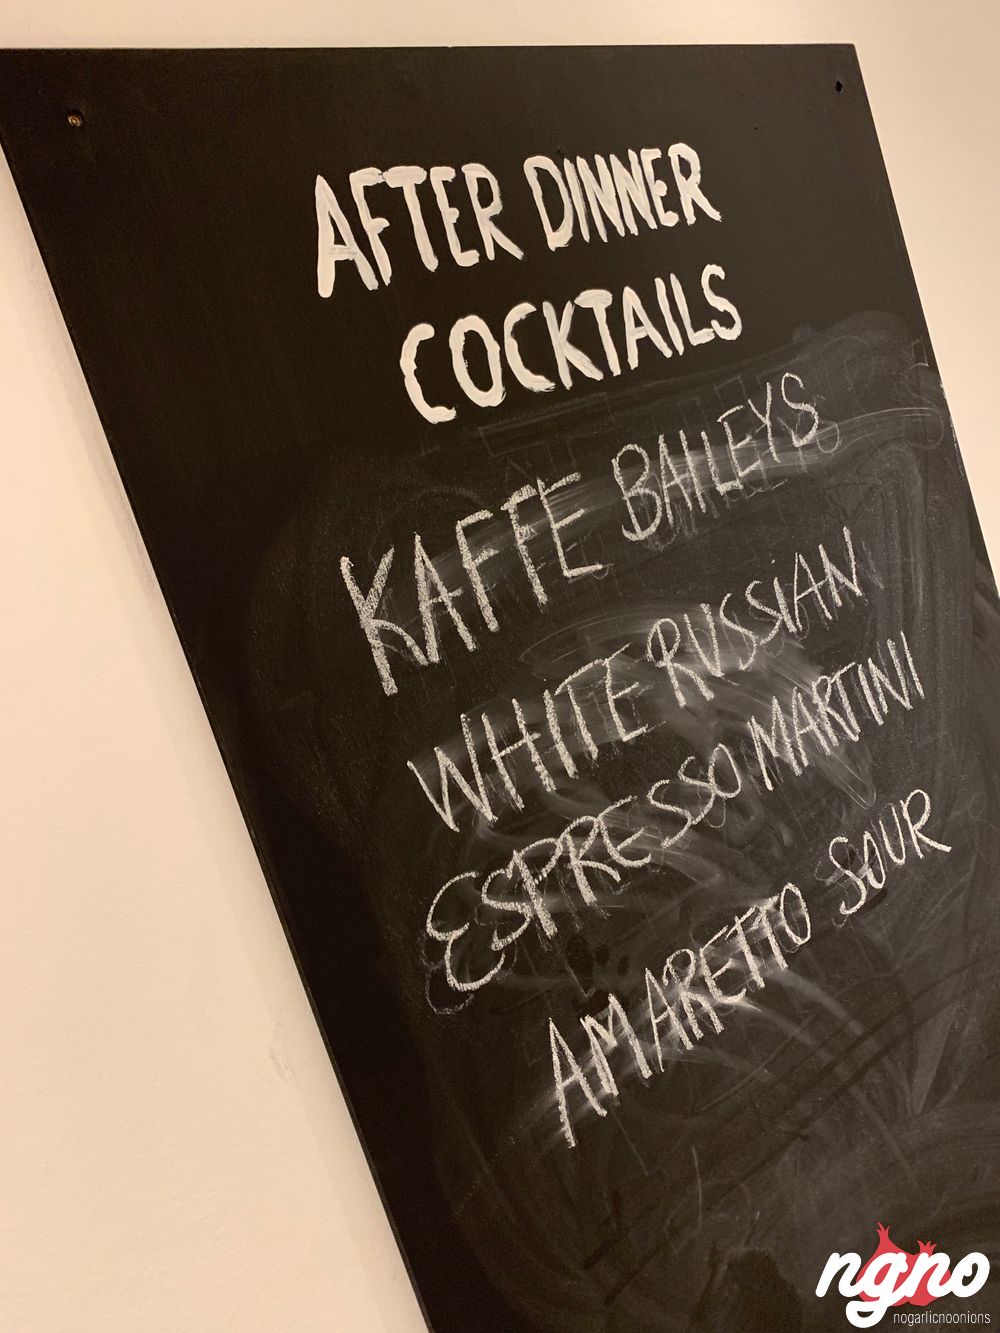 AFTER DINNER
COCKTAILS
KAFFE BAILEYS
WHITE RUSSIAN
ESPRESSO MARTINI
AMARETTO SOUR
ngno
nogarlicnoonions